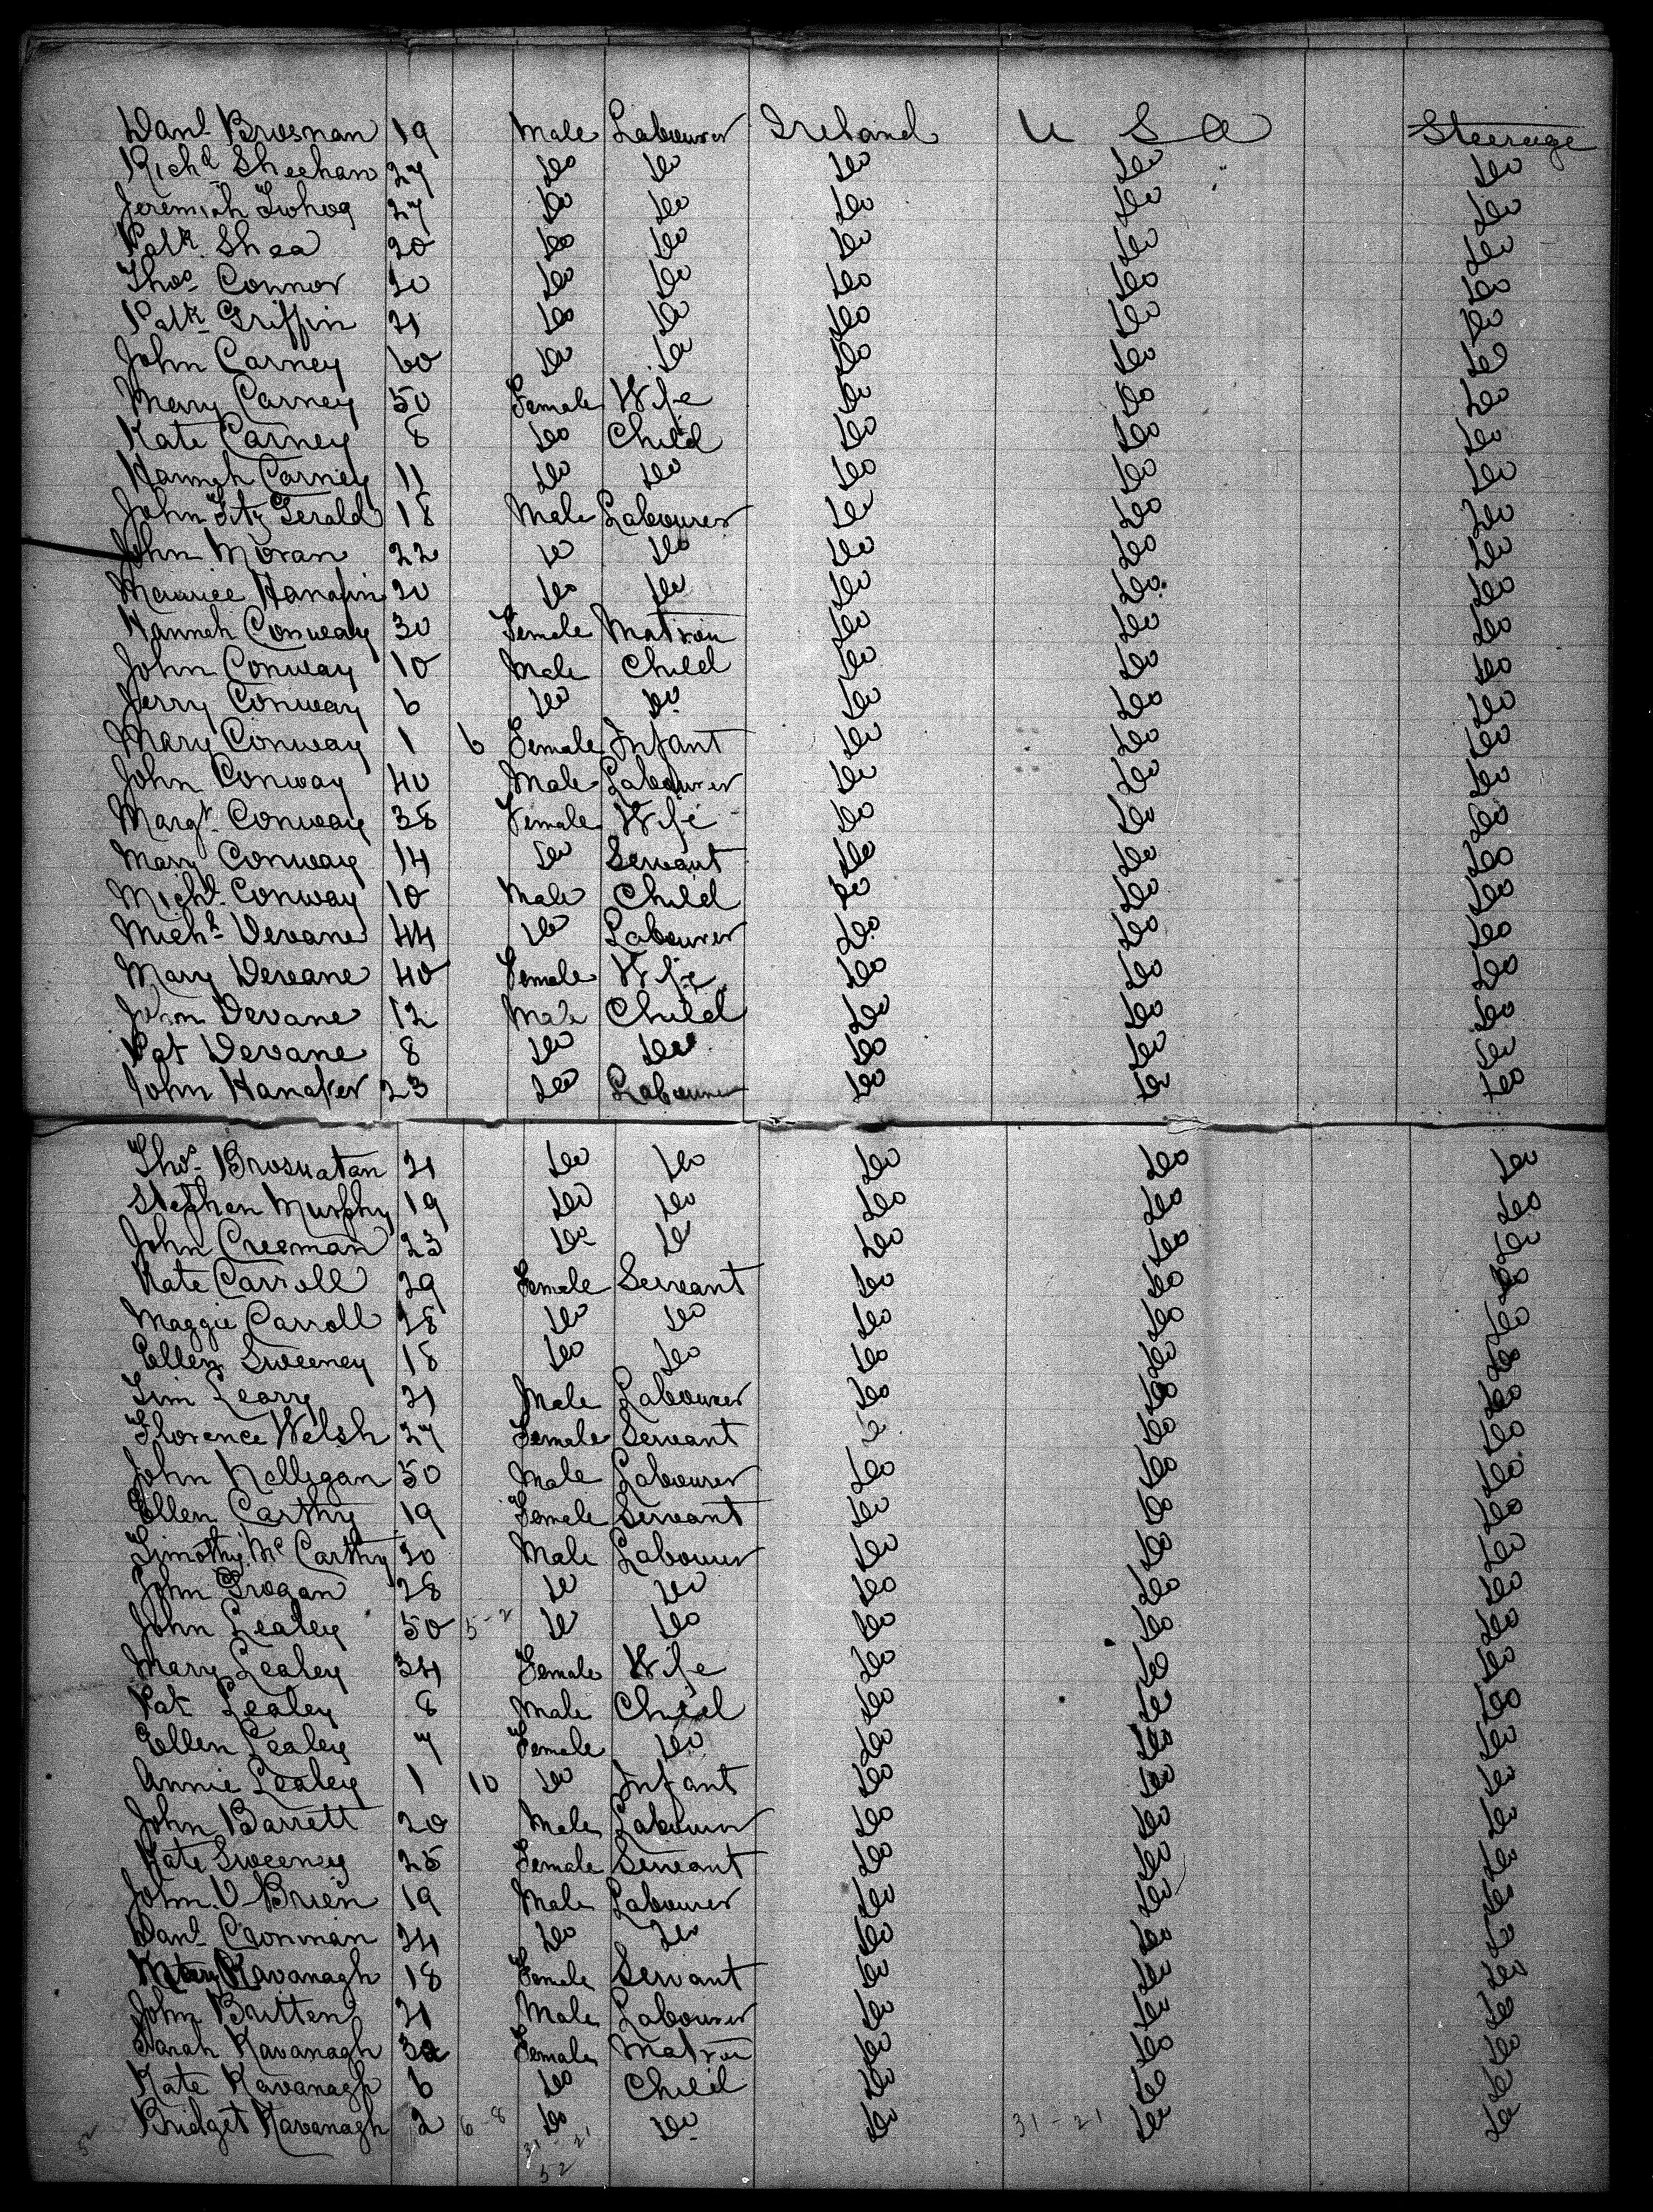 Danl Brosnan 19 Male Labourer Ireland U S A Steerage
Richd Sheehan 27 do do do do do
Jeremiah Twhog 27 do do do do do
Patk Shea 20 do do do do do
Thos Connor 20 do do do do do
Patk Griffin 21 do do do do do
John Carney 60 do do do do do
Mary Carney 50 Female Wife do do do
Kate Carney 8 do Child do do do
Hannah Carney 11 do do do do do
John Fitz Gerald 18 Male Labourer do do do
John Moran 22 do do do do do
Maurice Hanafin 20 do do do do do
Hannah Conway 30 Female Matron do do do
John Conway 10 Male Child do do do
Jerry Conway 6 do do do do do
Mary Conway 1 6 Female Infant do do do
John Conway 40 Male Labourer do do do
Margt Conway 38 Female Wife do do do
Mary Conway 14 do Servant do do do
Michl Conway 10 Male Child do do do
Michl Devane 44 do Labourer do do do
Mary Devane 40 Female Wife do do do
John Devane 12 Male Child do do do
Pat Devane 8 do do do do do
John Hanafer 23 do Labourer do do do
Thos Brosnatan 21 do do do do do
Stephen Murphy 19 do do do do do
John Creeman 23 do do do do do
Kate Carroll 29 Female Servant do do do
Maggie Carroll 28 do do do do do
Ellen Sweeney 18 do do do do do
Tim Leary 21 Male Labourer do do do
Florence Welsh 27 Female Servant do do do
John Nelligan 50 Male Labourer do do do
Ellen Carthy 19 Female Servant do do do
Timothy Mc Carthy 20 Male Labourer do do do
John Grogan 28 do do do do do
John Lealey 50 5-2 do do do do do
Mary Lealey 34 Female Wife do do do
Pat Lealey 8 Male Child do do do
Ellen Lealey 7 Female do do do do
Annie Lealey 1 10 do Infant do do do
John Barrett 20 Male Labourer do do do
Kate Sweeney 25 Female Servant do do do
John O-Brien 19 Male Labourer do do do
Danl Cronman 24 do do do do do
Mary Kavanagh 18 Female Servant do do do
John Britten 21 Male Labourer do do do
Sarah Kavanagh 32 Female Matron do do do
Kate Kavanagh 6 do Child do do do
Bridget Kavanagh 2 6-8 do do do 31-21 do do
52 31 21
52